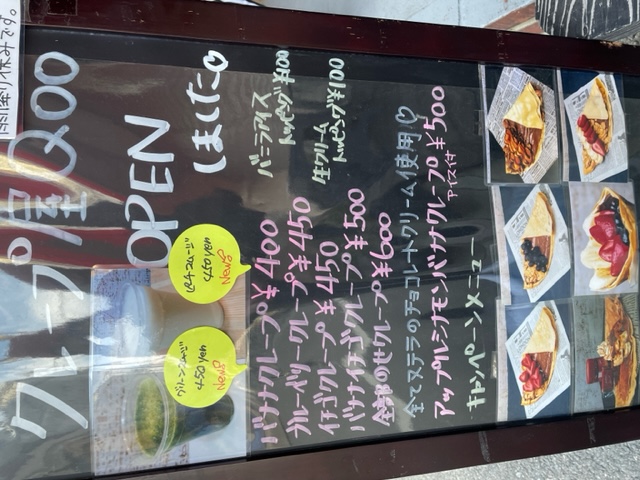 雨降り休みです。
クレープ屋QOO
OPEN
しました♡
グリーンスムージー
450yen
New!
450yen
New!
バナナクレープ¥400
ブルーベリークレープ¥450
イチゴクレープ¥450
バナナイチゴクレープ¥500
全部のせクレープ¥600
バニラアイス
トッピング¥100
生クリーム
トッピング¥100
全てヌテラのチョコレートクリーム使用♡
アップルシナモンバナナクレープ¥500
アイス付
キャンペーンメニュー